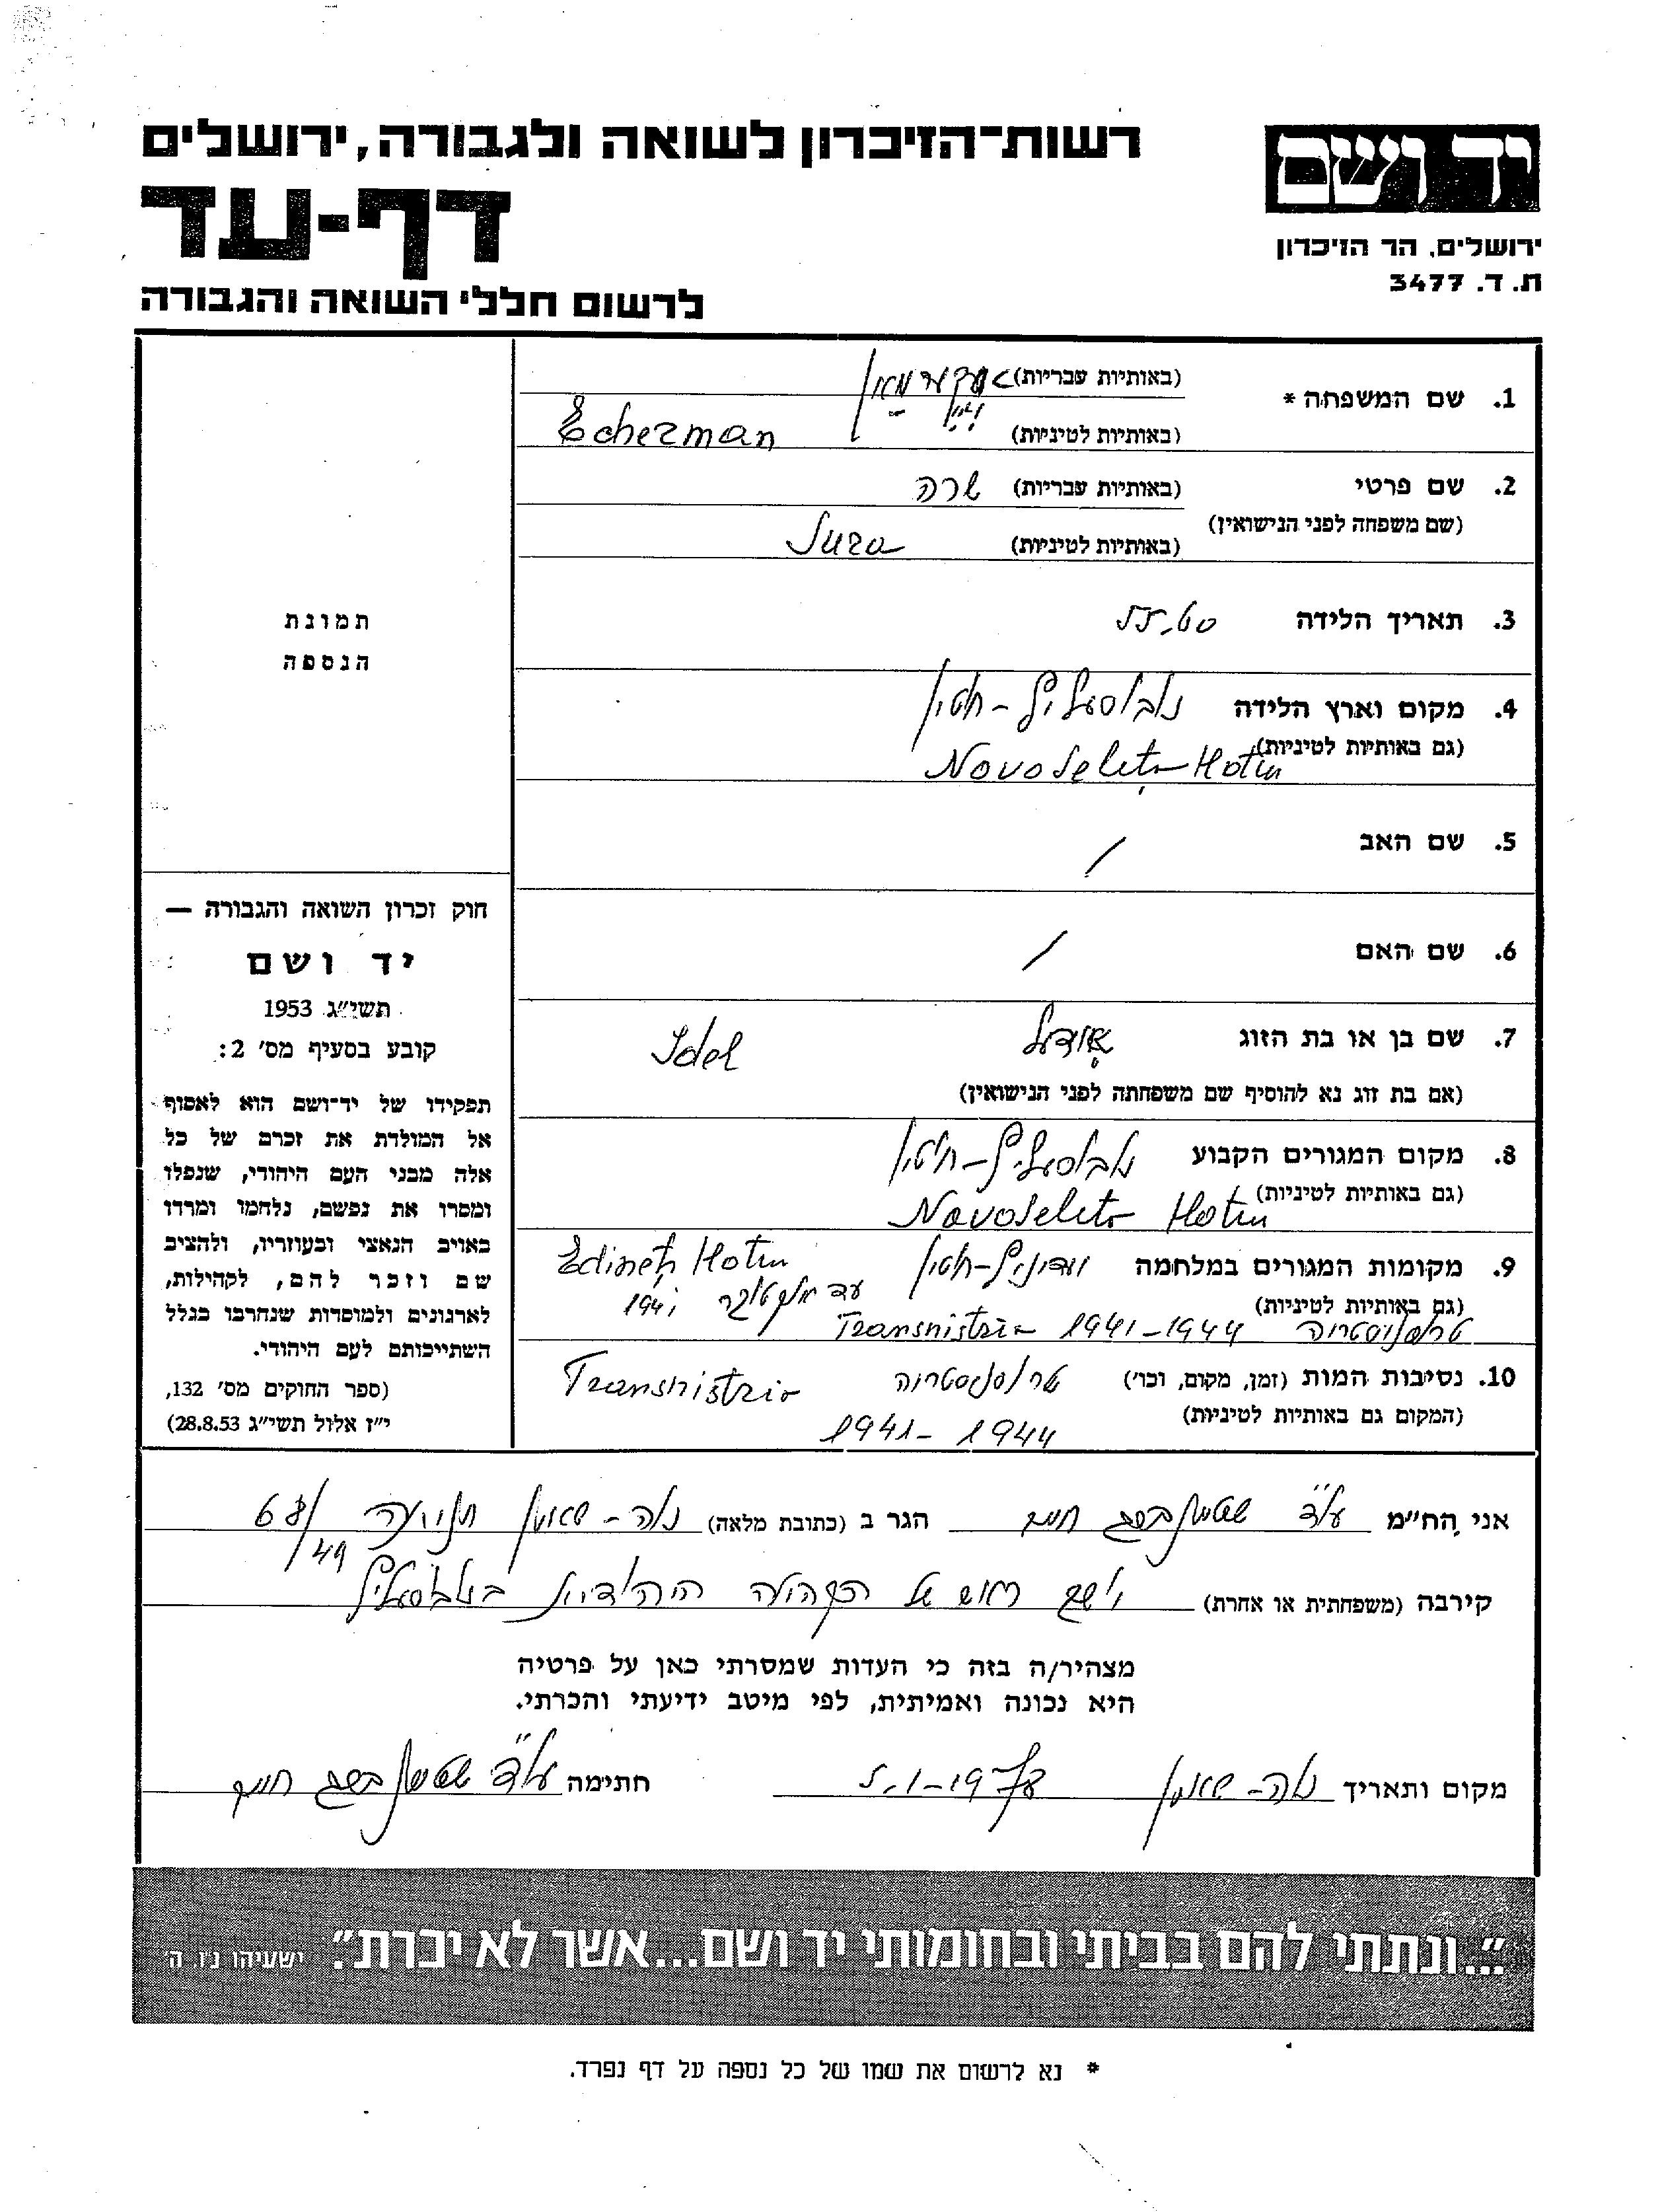 רשות־הזיכרון לשואה ולגבורה, ירושלים
דף-עד
לרשום חללי השואה והגבורה
יד ושם
ירושלים, הר הזיכרון
ת. ד. 3477
1. שם המשפחה * (באותיות עבריות)
(באותיות לטיניות) Echerman
2. שם פרטי (באותיות עבריות) שרה
(שם משפחה לפני הנישואין) (באותיות לטיניות) Sura
3. תאריך הלידה 55-60
4. מקום וארץ הלידה נובוסעליץ - חוטין
(גם באותיות לטיניות) Novoseletz Hotin
5. שם האב /
6. שם האם /
7. שם בן או בת הזוג Idel
(אם בת זוג נא להוסיף שם משפחתה לפני הנישואין)
8. מקום המגורים הקבוע נובוסעליץ - חוטין
(גם באותיות לטיניות) Novoseletz Hotin
9. מקומות המגורים במלחמה חוטין Edinetz Hotin
עד אוקטובר 1941
(גם באותיות לטיניות)
טרנסניסטריה Transnistria 1941-1944
10. נסיבות המות (זמן, מקום, וכו') טרנסניסטריה Transnistria
(המקום גם באותיות לטיניות) 1941-1944
תמונת
הנספה
חוק זכרון השואה והגבורה —
יד ושם
תשי"ג 1953
קובע בסעיף מס' 2:
תפקידו של יד־ושם הוא לאסוף
אל המולדת את זכרם של כל
אלה מבני העם היהודי, שנפלו
ומסרו את נפשם, נלחמו ומרדו
באויב הנאצי ובעוזריו, ולהציב
שם וזכר להם, לקהילות,
לארגונים ולמוסדות שנחרבו בגלל
השתייכותם לעם היהודי.
(ספר החוקים מס' 132,
י"ז אלול תשי"ג 28.8.53)
אני הח"מ עו"ד חיים הגר ב (כתובת מלאה) נוה-שאנן 68/49
קירבה (משפחתית או אחרת) ראש של הקהילה היהודית בנובוסעליץ
מצהיר/ה בזה כי העדות שמסרתי כאן על פרטיה
היא נכונה ואמיתית, לפי מיטב ידיעתי והכרתי.
מקום ותאריך נוה-שאנן חתימה עו"ד חיים
"...ונתתי להם בביתי ובחומותי יד ושם...אשר לא יכרת." ישעיהו נ"ו, ה'
* נא לרשום את שמו של כל נספה על דף נפרד.